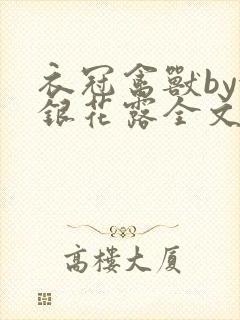 衣冠禽獸by
銀花露全文
高樓大廈